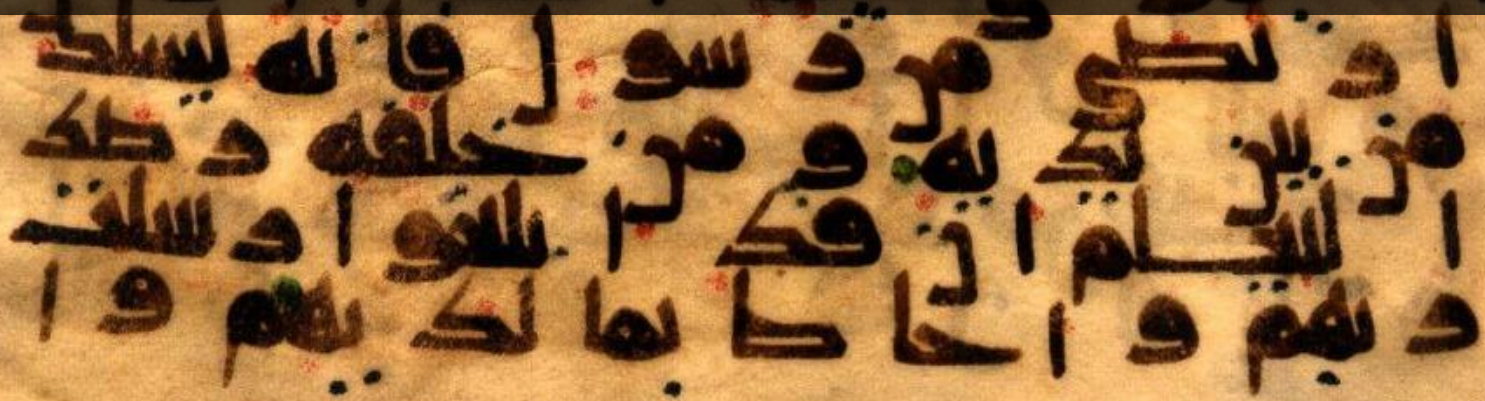 ارتضى من رسول فانه يسلك
من بين يديه ومن خلفه رصد
ا ليعلم ان قد ابلغوا رسلت
ربهم واحاط بما لديهم وا